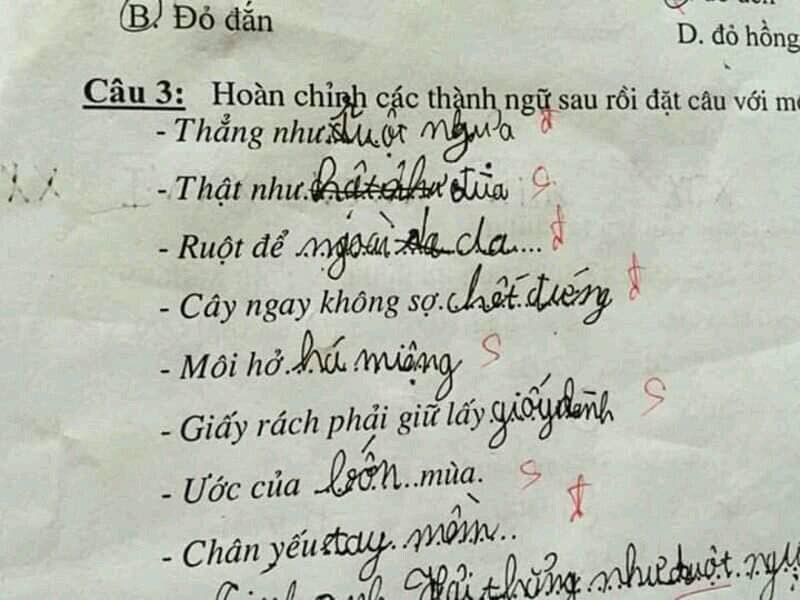 B. Đỏ đắn
D. đỏ hồng
Câu 3: Hoàn chỉnh các thành ngữ sau rồi đặt câu với
- Thẳng như ruột ngựa đ
- Thật như đùa s
- Ruột để ngoài da... đ
- Cây ngay không sợ chết đứng đ
- Môi hở há miệng s
- Giấy rách phải giữ lấy s
- Ước của bốn mùa. s
- Chân yếu tay mềm đ
Hải thẳng như ruột